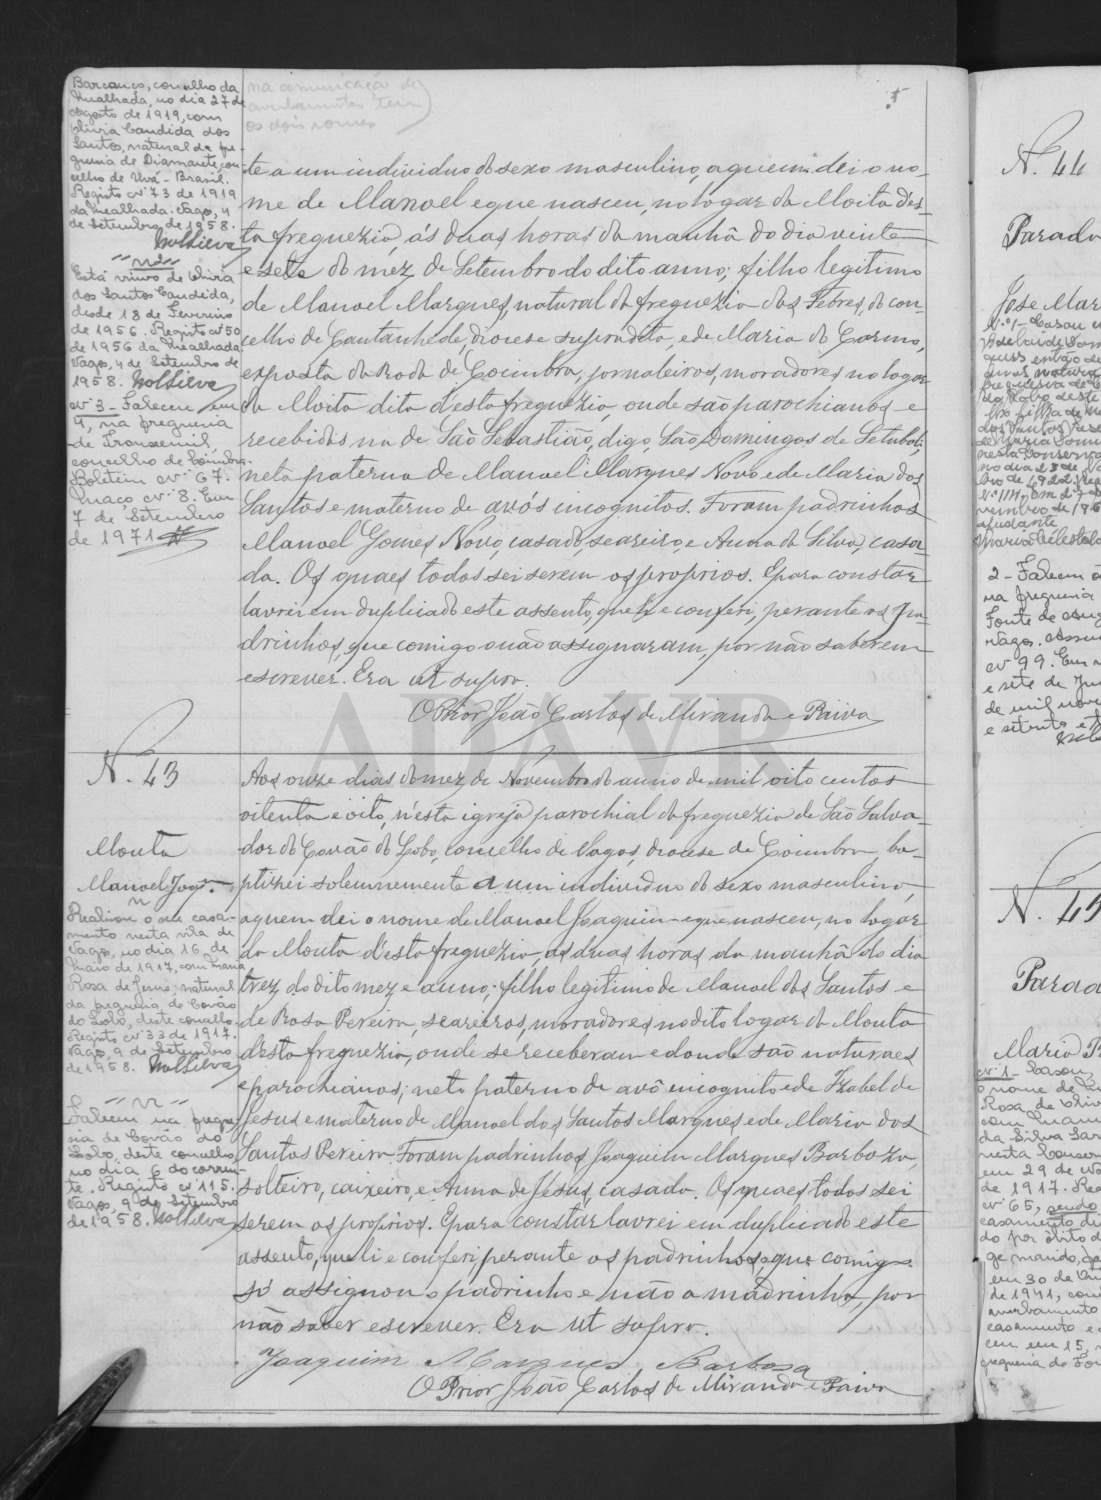 Barcouço, concelho da
Mealhada, no dia 27 de
Agosto de 1919, com
Olivia Candida dos
Santos, natural da fre-
guesia de Diamante, con-
celho de Uvá - Brasil.
Registo nº 73 de 1919
da Mealhada. Vagos, 4
de Setembro de 1958.
Está viuvo de Olivia
dos Santos Candida,
desde 18 de Fevereiro
de 1956. Registo nº 50
de 1956 da Mealhada.
Vagos, 4 de Setembro de
1958.
nº 3 - Faleceu em
4, na freguesia
de Trouxemil,
concelho de Coimbra.
Boletim nº 67.
Maço nº 8. Em
7 de Setembro
de 1971
na comunicação de
averbamentos tem
os dois nomes
te a um individuo do sexo masculino, a quem dei o no-
me de Manoel e que nasceu, no logar da Moita d'es-
ta freguezia, ás duas horas da manhã do dia vinte
e sete do mez de Setembro do dito anno; filho legitimo
de Manoel Marques, natural da freguezia das Febres, do con-
celho de Cantanhede, diocese supradita, e de Maria do Carmo,
exposta da Roda de Coimbra, jornaleiros, moradores no logar
da Moita dita d'esta freguezia, onde são parochianos e
recebidos na de São Sebastião, digo, São Domingos de Setubal;
neto paterno de Manoel Marques Novo e de Maria dos
Santos e materno de avós incognitos. Foram padrinhos
Manoel Gomes Novo, casado, seareiro, e Anna da Silva, casa-
da. Os quaes todos sei serem os proprios. E para constar
lavrei em duplicado este assento, que li e conferi, perante os pa-
drinhos, que comigo não assignaram, por não saberem
escrever. Era ut supra.
O Prior João Carlos de Miranda e Paiva
N. 43
Mouta
Manoel Joaqm.
Realizou o seu casa-
mento nesta vila de
Vagos, no dia 16 de
Maio de 1917, com Maria
Rosa de Jesus, natural
da freguesia de Covão
do Lobo, deste concelho.
Registo nº 33 de 1917.
Vagos, 9 de Setembro
de 1958.
Faleceu na fregue-
sia de Covão do
Lobo, deste concelho,
no dia 6 do corren-
te. Registo nº 115.
Vagos, 9 de Setembro
de 1958.
Aos onze dias do mez de Novembro do anno de mil oito centos
oitenta e oito, n'esta igreja parochial da freguezia de São Salva-
dor do Covão do Lobo, concelho de Vagos, diocese de Coimbra, ba-
ptizei solemnemente a um individuo do sexo masculino,
a quem dei o nome de Manoel Joaquim e que nasceu, no logar
da Mouta d'esta freguezia, ás duas horas da manhã do dia
trez do dito mez e anno; filho legitimo de Manoel dos Santos e
de Rosa Pereira, seareiros, moradores no dito logar da Mouta
d'esta freguezia, onde se receberam e donde são naturaes
e parochianos; neto paterno de avô incognito e de Izabel de
Jesus e materno de Manoel dos Santos Marques e de Maria dos
Santos Pereira. Foram padrinhos Joaquim Marques Barboza,
solteiro, caixeiro, e Anna de Jesus, casada. Os quaes todos sei
serem os proprios. E para constar lavrei em duplicado este
assento, que li e conferi perante os padrinhos, que comigo
só assignou o padrinho e não a madrinha, por
não saber escrever. Era ut supra.
Joaquim Marques Barbosa
O Prior João Carlos de Miranda e Paiva
ADAVR
N. 44
Parada
José Mar
2 - Faleceu
na freguesia
Fonte de
Vagos.
nº 99. Em
e sete de
de mil nove
e setenta e
N. 45
Parada
Maria
nº 1 - Casou
o nome de
Rosa de
com
da Silva
nesta
em 29 de
de 1917.
nº 65,
casamento
do por óbito
em 30 de
de 1941,
averbamento
casamento e
ceu em 15,
freguesia de